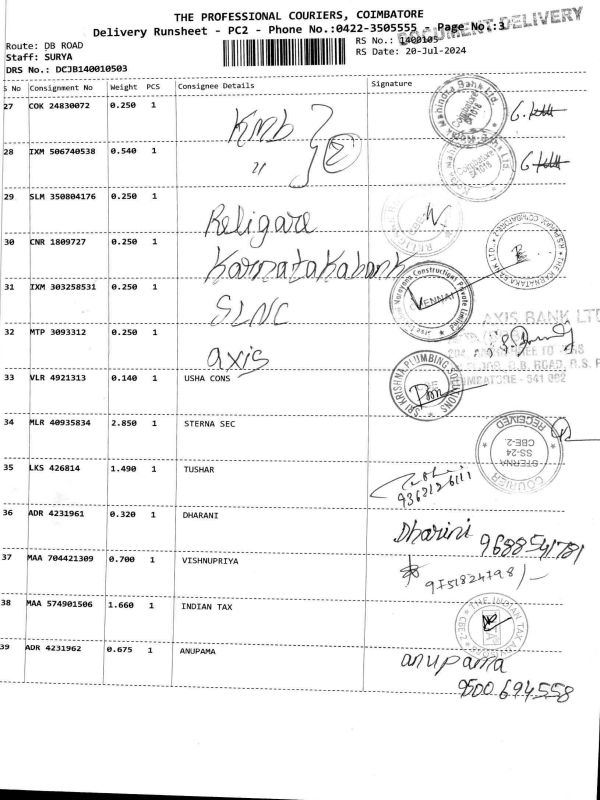 THE PROFESSIONAL COURIERS, COIMBATORE
Delivery Runsheet - PC2 - Phone No.:0422-3505555 - Page No.:3
DOCUMENT DELIVERY
Route: DB ROAD
RS No.: 1400105
Staff: SURYA
RS Date: 20-Jul-2024
DRS No.: DCJB140010503
S No Consignment No Weight PCS Consignee Details Signature
27 COK 24830072 0.250 1 KMB
28 IXM 506740538 0.540 1 "
29 SLM 350804176 0.250 1 Religare
30 CNR 1809727 0.250 1 Karnatakabank
31 IXM 303258531 0.250 1 SLNC
32 MTP 3093312 0.250 1 axis
AXIS BANK LTD
33 VLR 4921313 0.140 1 USHA CONS
SRI KRISHNA PLUMBING SOLUTIONS
COIMBATORE - 641 002
34 MLR 40935834 2.850 1 STERNA SEC
STERNA
CBE-2
SS-24
RECEIVED
COURIER
35 LKS 426814 1.490 1 TUSHAR
36 ADR 4231961 0.320 1 DHARANI Dharini 9688541781
37 MAA 704421309 0.700 1 VISHNUPRIYA
38 MAA 574901506 1.660 1 INDIAN TAX
39 ADR 4231962 0.675 1 ANUPAMA anupama
9500694558